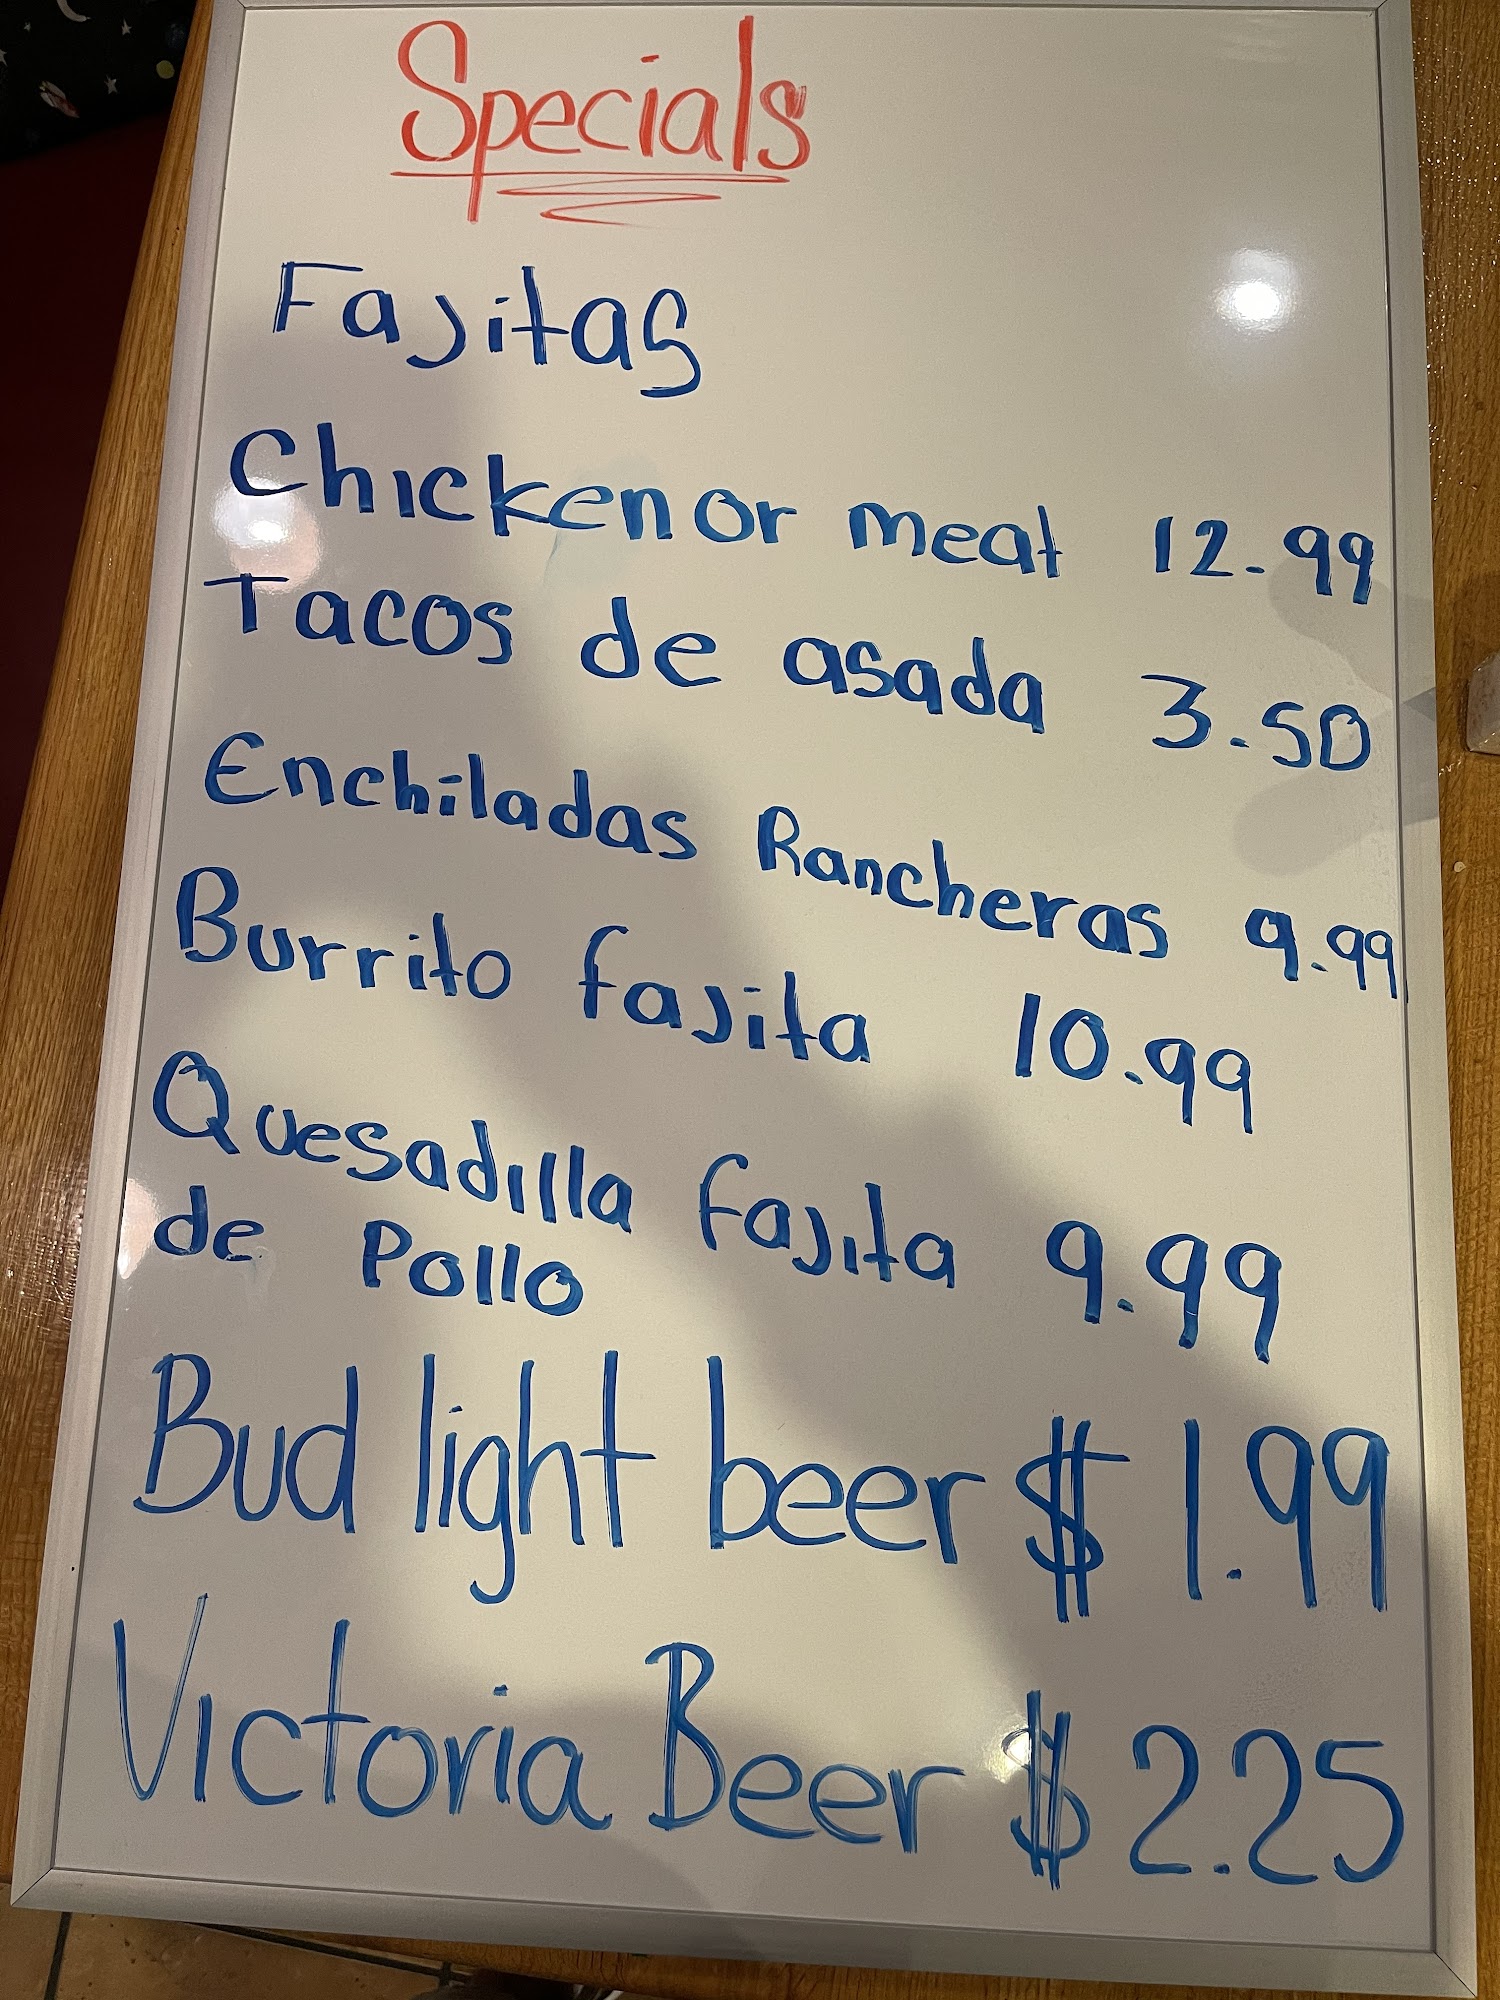 Specials
Fajitas
Chicken or meat 12.99
Tacos de asada 3.50
Enchiladas Rancheras 9.99
Burrito fajita 10.99
Quesadilla fajita 9.99
de Pollo
Bud light beer $ 1.99
Victoria Beer $ 2.25